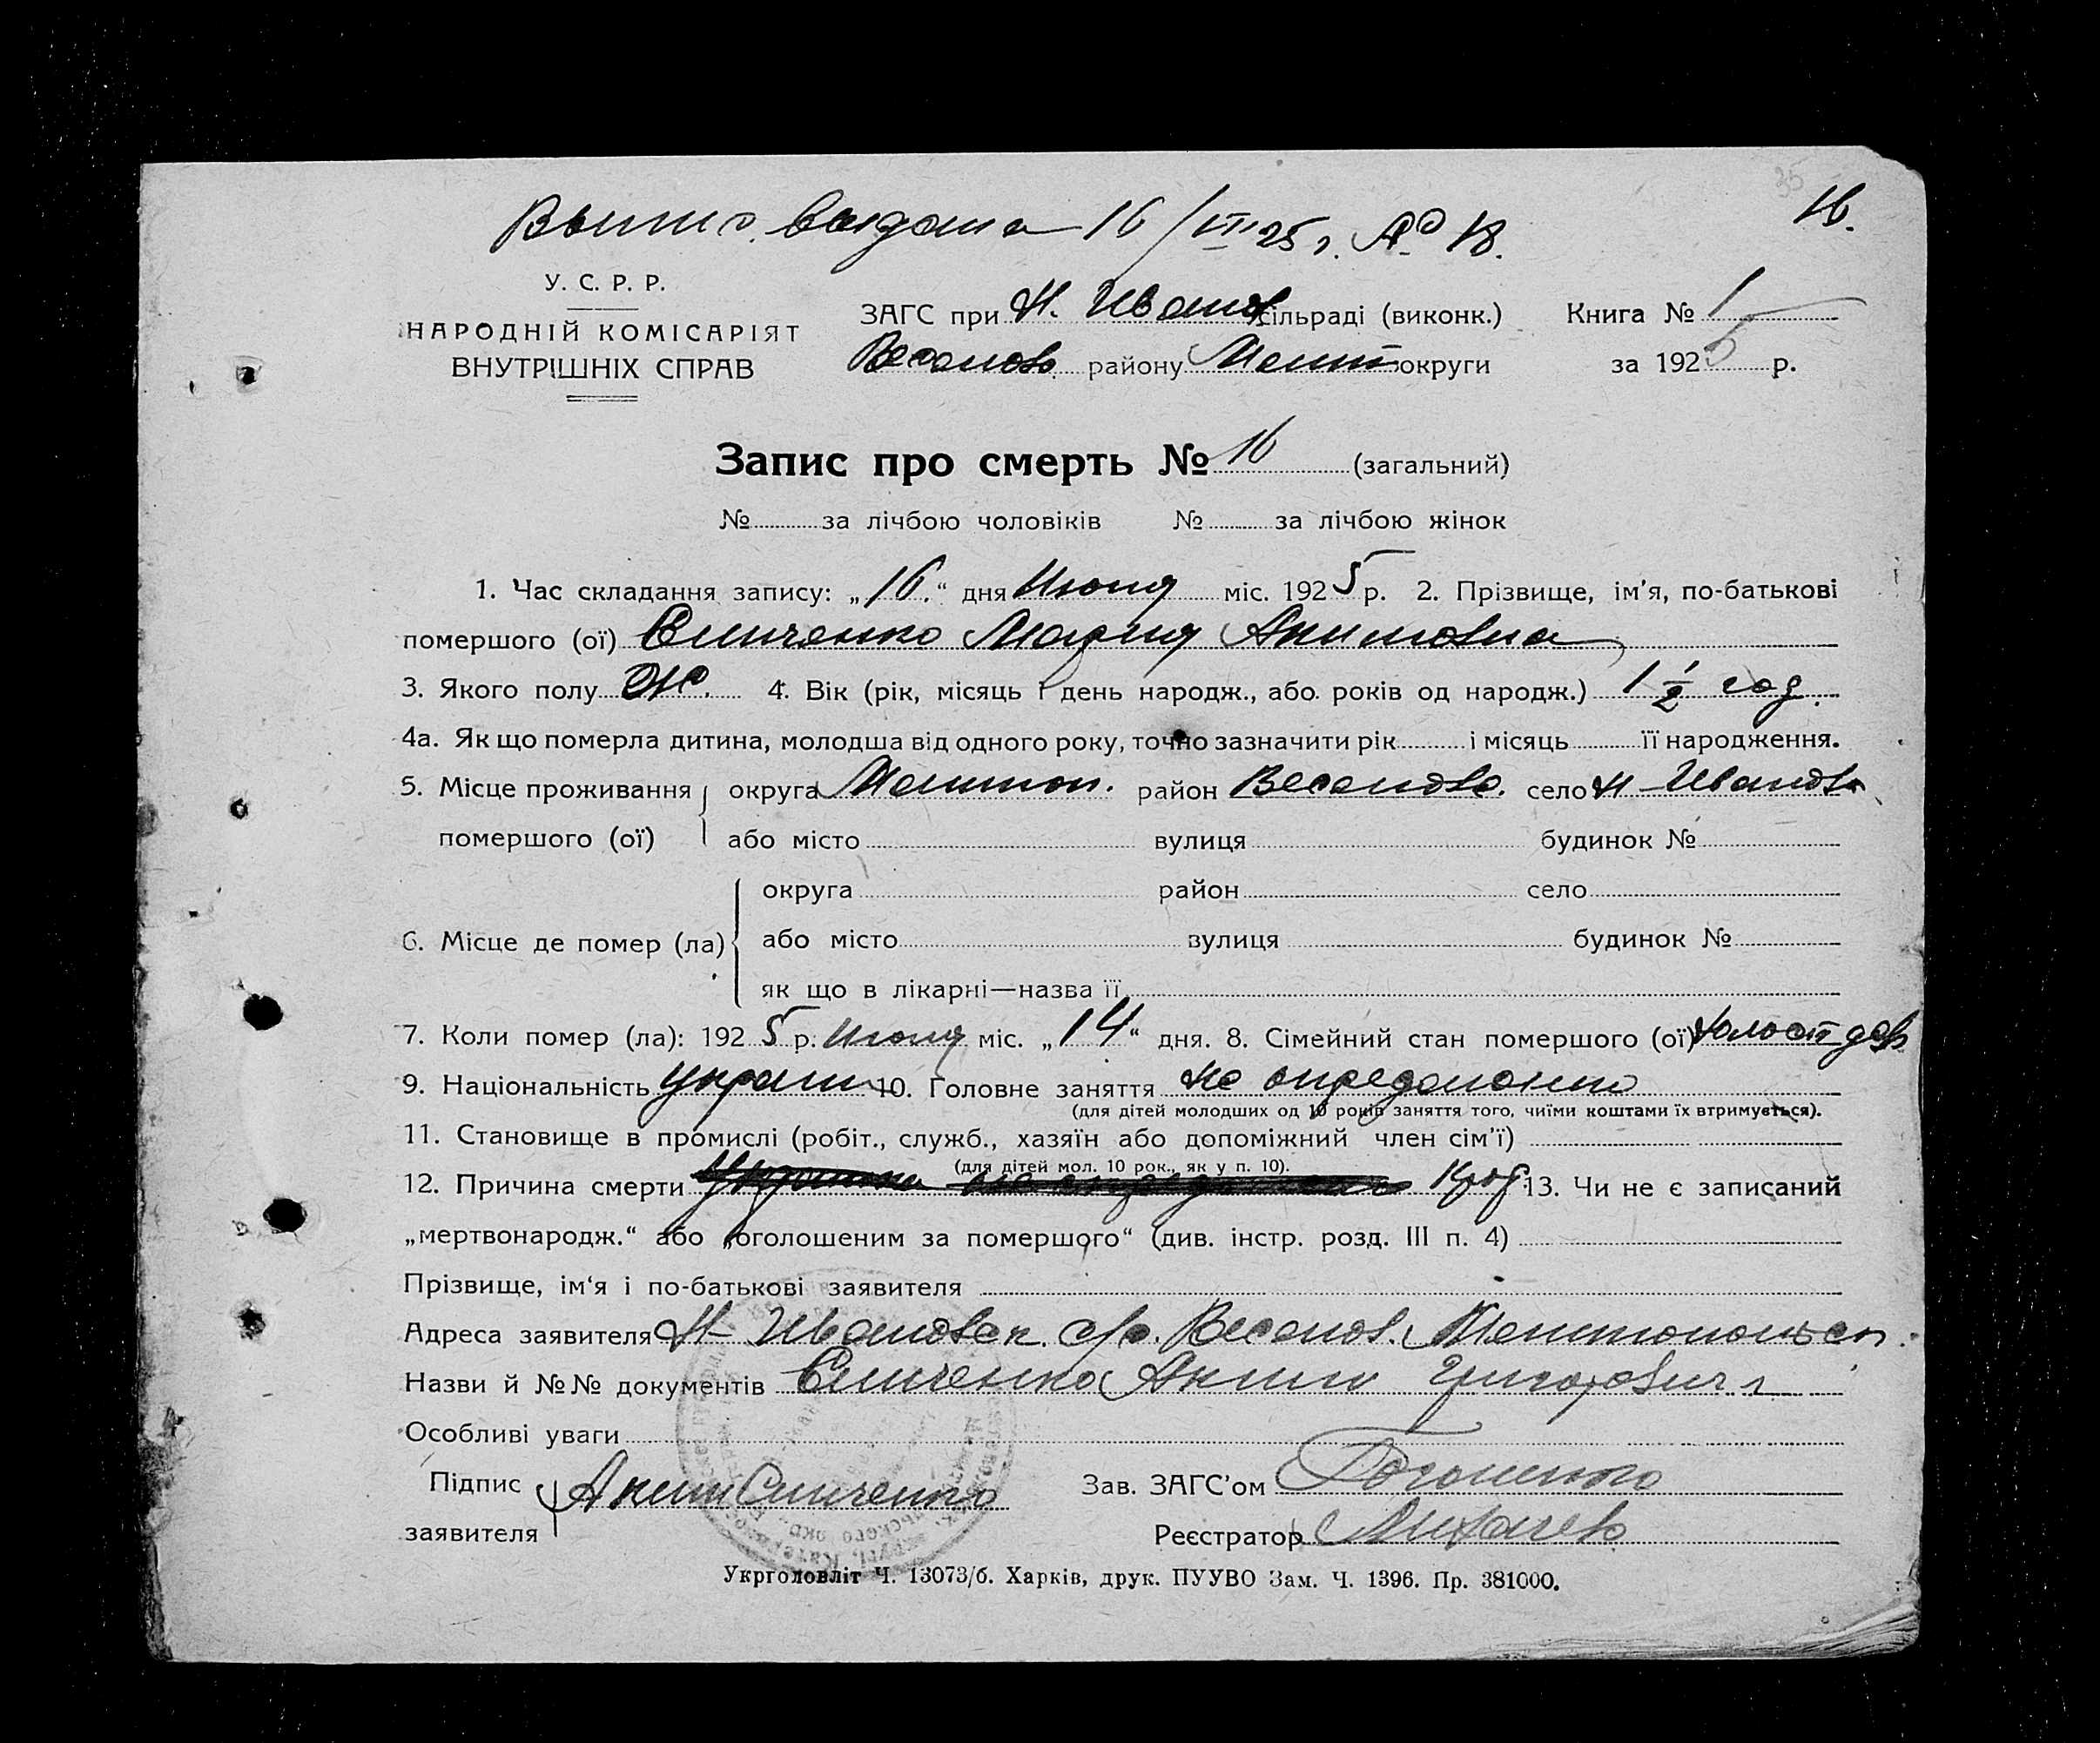 35
Выпис. выдана 16/VI 25 г. № 18.
16.
У. С. Р. Р.
НАРОДНІЙ КОМІСАРІЯТ
ВНУТРІШНІХ СПРАВ
ЗАГС при Н. Иванов сільраді (виконк.)
Веселов. району Мелит округи
Книга № 1
за 1925 р.
Запис про смерть № 16 (загальний)
№ за лічбою чоловіків № за лічбою жінок
1. Час складання запису: „16.“ дня Июня міс. 1925 р. 2. Прізвище, ім'я, по-батькові
помершого (ої) Синченко Мария Акимовна
3. Якого полу Ж. 4. Вік (рік, місяць і день народж., або років од народж.) 1 1/2 год.
4а. Як що померла дитина, молодша від одного року, точно зазначити рік і місяць її народження.
5. Місце проживання помершого (ої) округа Мелитоп. район Веселов. село Н-Иванов
або місто вулиця будинок №
6. Місце де помер (ла) округа район село
або місто вулиця будинок №
як що в лікарні—назва її
7. Коли помер (ла): 1925 р. Июня міс. „14“ дня. 8. Сімейний стан помершого (ої)
9. Національність украин 10. Головне заняття не определенно
(для дітей молодших од 10 років заняття того, чиїми коштами їх втримується).
11. Становище в промислі (робіт., служб., хазяїн або допоміжний член сім'ї)
(для дітей мол. 10 рок., як у п. 10).
12. Причина смерти 13. Чи не є записаний
„мертвонародж.“ або „оголошеним за помершого“ (див. інстр. розд. III п. 4)
Прізвище, ім'я і по-батькові заявителя
Адреса заявителя Н-Ивановск. с/р. Веселов. Мелитопольск.
Назви й №№ документів Синченко Аким Григорович
Особливі уваги
Підпис заявителя Аким Синченко
Зав. ЗАГС'ом
Реєстратор
Укрголовліт Ч. 13073/б. Харків, друк. ПУУВО Зам. Ч. 1396. Пр. 381000.